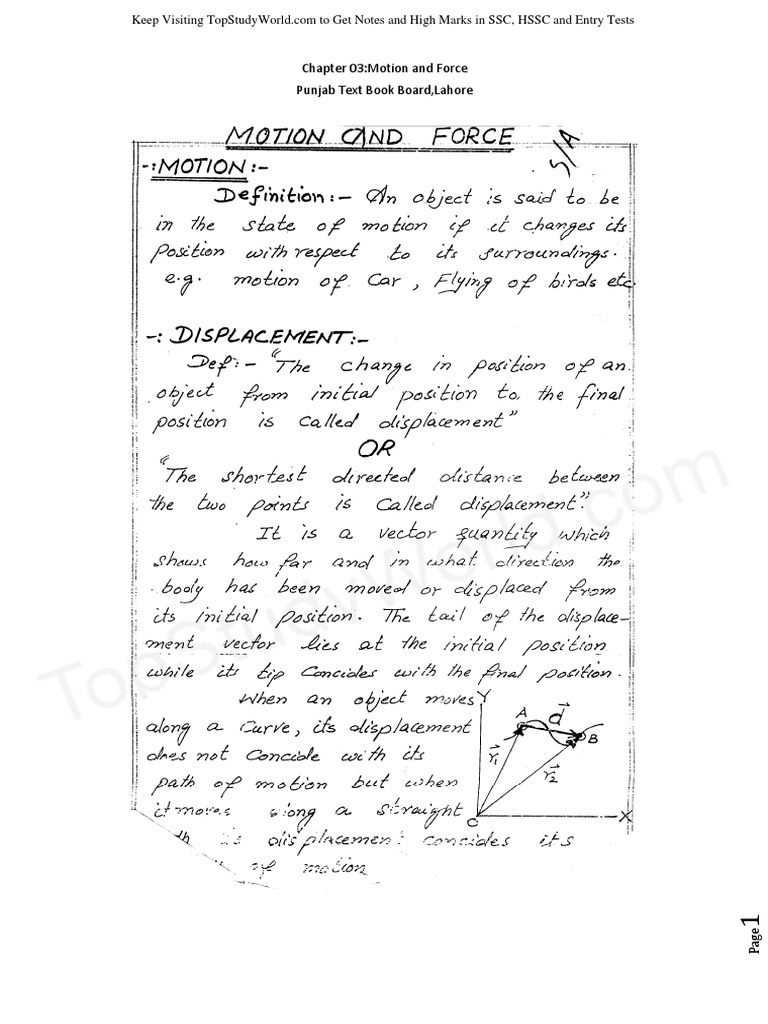 Keep Visiting TopStudyWorld.com to Get Notes and High Marks in SSC, HSSC and Entry Tests
Chapter 03:Motion and Force
Punjab Text Book Board,Lahore
MOTION AND FORCE
S/A
-: MOTION :-
Definition :- An object is said to be
in the state of motion if it changes its
Position with respect to its surroundings.
e.g. motion of Car , Flying of birds etc.
-: DISPLACEMENT:-
Def:- "The change in position of an
object from initial position to the final
position is called displacement"
OR
"The shortest directed distance between
the two points is Called displacement".
It is a vector quantity which
shows how far and in what direction the
body has been moved or displaced from
its initial position. The tail of the displace-
ment vector lies at the initial position
while its tip Concides with the final position.
When an object moves
along a Curve, its displacement
does not Concide with its
path of motion but when
it moves along a straight
displacement concides its
of motion
Y
A
d⃗
B
r⃗1
r⃗2
O
X
TopStudyWorld.com
Page 1